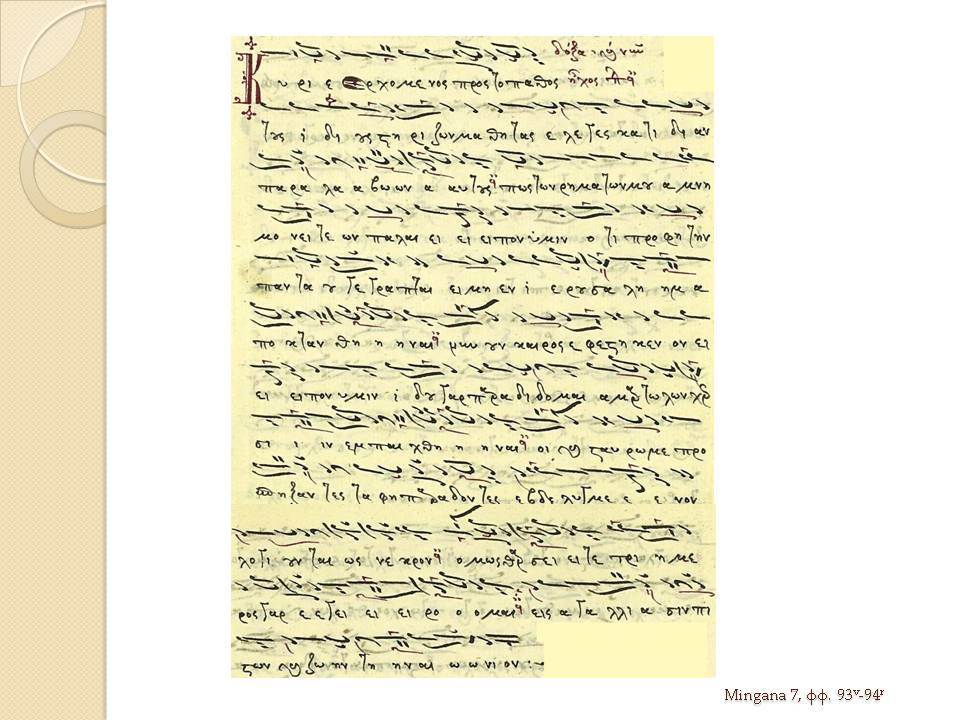 δόξα και νῦν
Κυ ρι ε Ερχομε νος προς το παθος ἦχος πλ δ
τους ι δι ους στη ρι ζων μα θη τας ε λε γες κα τι δι αν
παρα λα α βω ων α αυτους πως των ρηματων μου α μνη
μο νει τε ων παλαι ει ει ειπον ὑμιν ο τι προφη την
παντα ου γεγραπται ει μη εν ι ε ρουσα λη ημ α
πο κταν θη η η ναι νυν ουν καιρος ε φεστηκεν ον ει
ει ειπον υμιν ι δου γαρ παραδιδομαι αμαρτωλων χερ
σι ι ιν εμπαι χθη η η ναι οι και σταυ ρω με προ
σπηξαν τες τα φη παραδοντες εβδε λυγμε ε ε νον
λογι ουνται ως νε κρον ομως θαρσει ει τε τρι η με
ρος γαρ ε ε γει ει ει ρο ο ο μαι εις α γα λλι α σιν πι
στων και ζωην τη ην αι ω ω νι ον :~
Mingana 7, φφ. 93v-94r